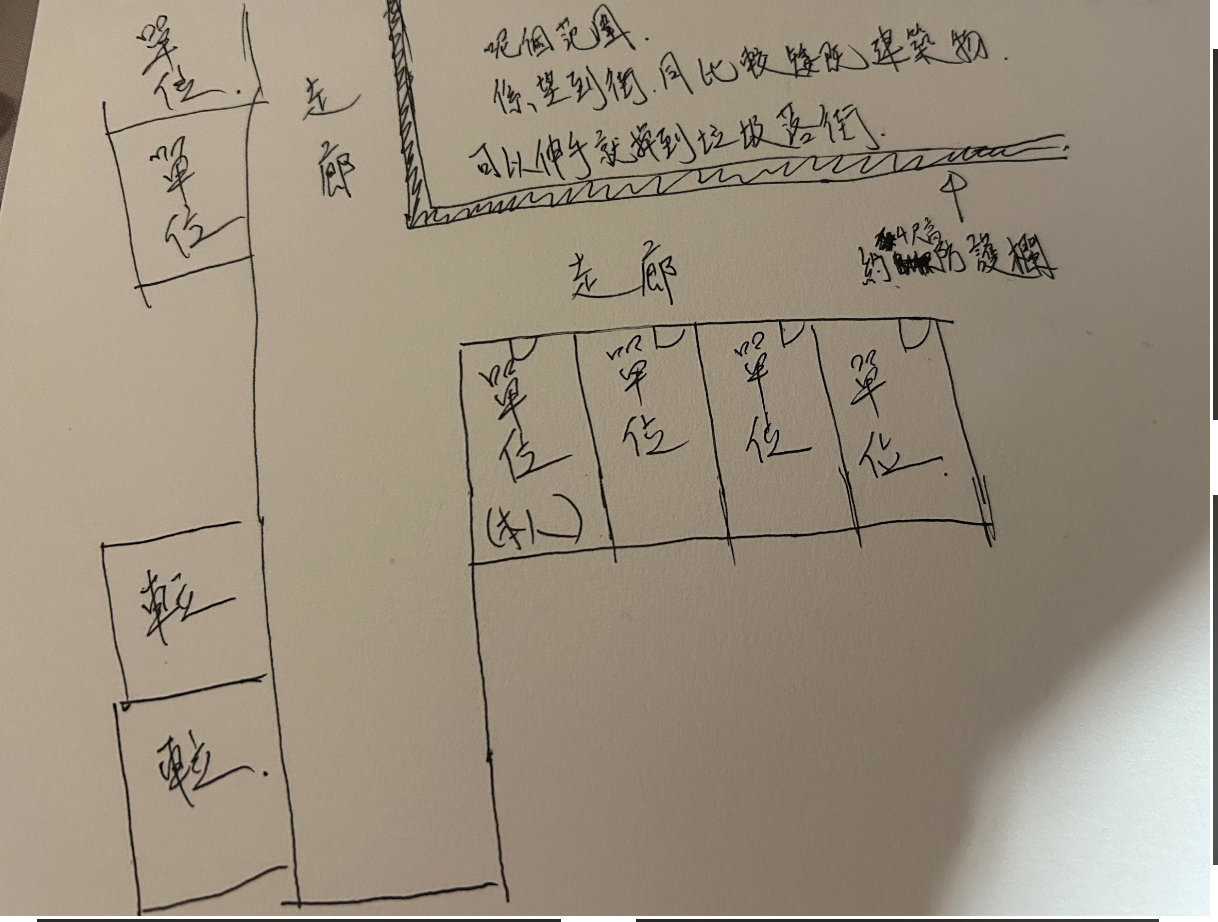 呢個范圍.
係望到街.同比較矮既建築物.
可以伸手就掉到垃圾落街.
單位.
走廊
單位
走廊
約4尺高防護欄
單位
(本人)
單位
單位
單位.
𨋢
𨋢.